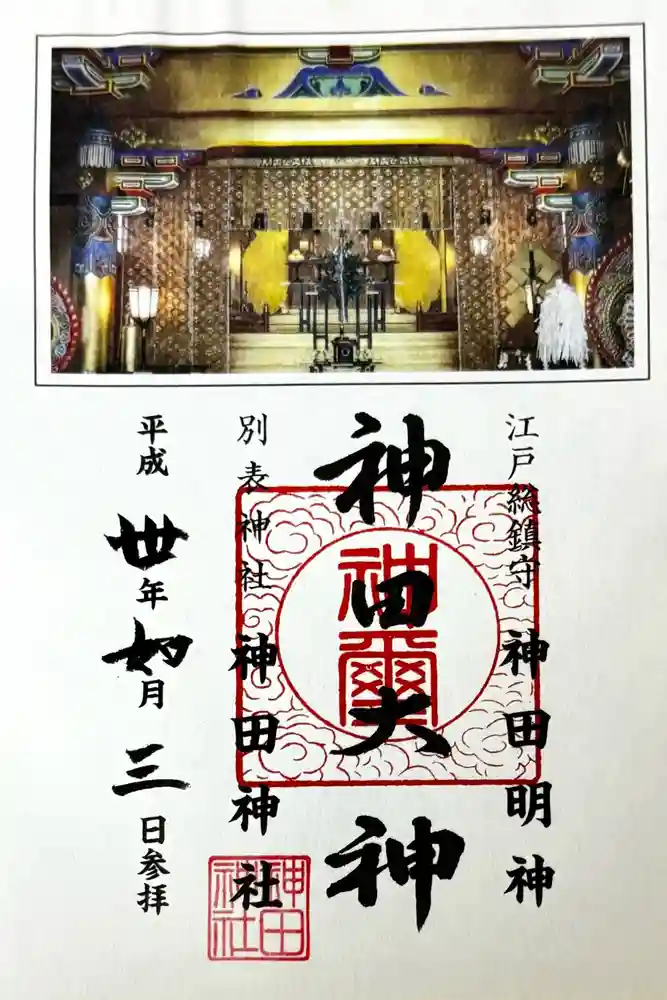 江戸総鎮守 神田明神
神田大神
神璽
別表神社 神田神社
神田
神社
平成丗年如月三日参拝